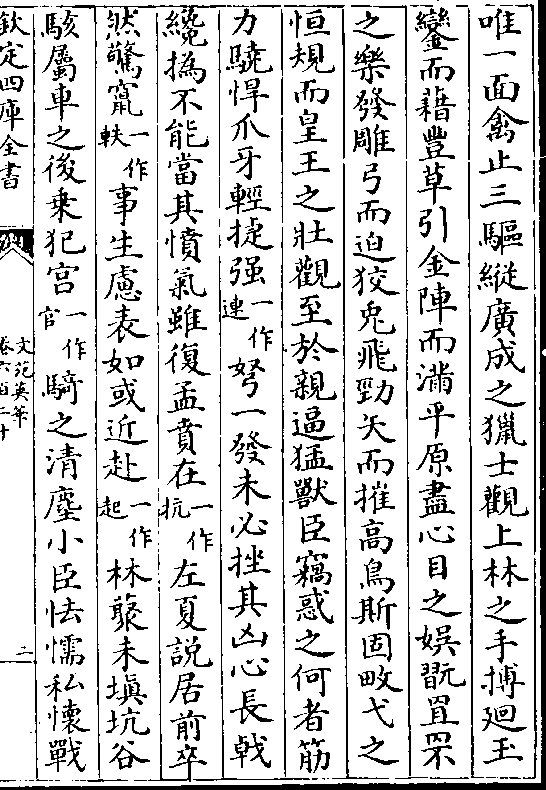 唯一面禽止三驅縱廣成之獵士觀上林之手搏迴玉
鑾而藉豐草引金陣而滿平原盡心目之娯翫罝罘
之樂發雕弓而迫狡兎飛勁矢而摧髙鳥斯固畋弋之
恒規而皇王之壯觀至於親逼猛獸臣竊惑之何者筋
力驍悍爪牙輕捷强一作連弩一發未必挫其凶心長㦸
纔撝不能當其憤氣雖復孟賁在一作抗左夏説居前卒
然驚竄一作軼事生慮表如或近赴一作起林藂未塡坑谷
駭屬車之後乗犯宫一作官騎之清塵小臣怯懦私懷戰
欽定四庫全書
文苑英華
卷六百二十
二